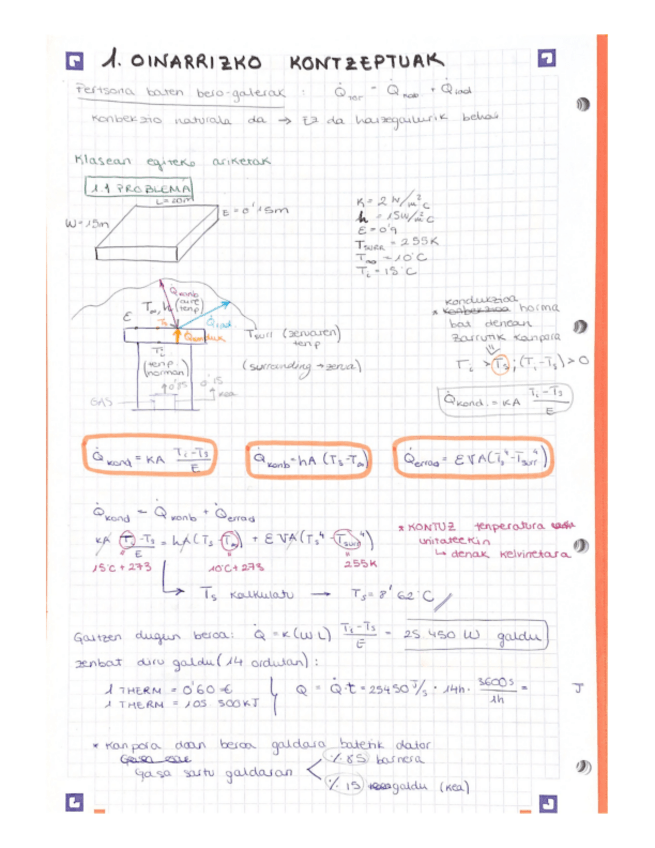 1. OINARRIZKO KONTZEPTUAK
Pertsona baten bero-galerak : Q̇ = Q̇konb + Q̇irad
Konbekzio naturala da → Ez da haizegailurik behar
Klasean egiteko ariketak
1.1 PROBLEMA
L=20m
W=15m
E=0'15m
K = 2 W/m²°C
h = 15W/m²°C
E = 0'9
TSURR = 255K
T∞ = 10°C
Ti = 15°C
Q̇konb
T∞, h (aire tenp)
Q̇irad.
E
Ts
Q̇konduk
Ti (tenp horman)
Tsurr (zeruaren) tenp
(surrounding → zerua)
0'85
0'15
kea
GAS
* kondukzioa horma
bat denean
barrutik kanpora
Ti > Ts ; (Ti - Ts) > 0
Q̇kond. = KA (Ti - Ts)/E
Q̇kond = KA (Ti-Ts)/E
Q̇konb = hA (Ts - T∞)
Q̇errad = EVA(Ts⁴ - Tsurr⁴)
Q̇kond = Q̇konb + Q̇errad
KA (Ti - Ts)/E = hA(Ts - T∞) + EVA(Ts⁴ - Tsurr⁴)
15°C + 273
10°C + 273
255K
* KONTUZ tenperatura
unitateekin
↳ denak kelvinetara
↳ Ts kalkulatu → Ts = 8'62°C
Galtzen dugun beroa: Q̇ = K(WL) (Ti - Ts)/E = 25 450 W galdu
zenbat diru galdu (14 ordutan) :
1 THERM = 0'60 €
1 THERM = 105 500 KJ
Q = Q̇·t = 25450 J/s · 14h · 3600s/1h = J
* Kanpora doan beroa galdara batetik dator
Gasa sartu galdaran
% 85 barnera
% 15 galdu (kea)